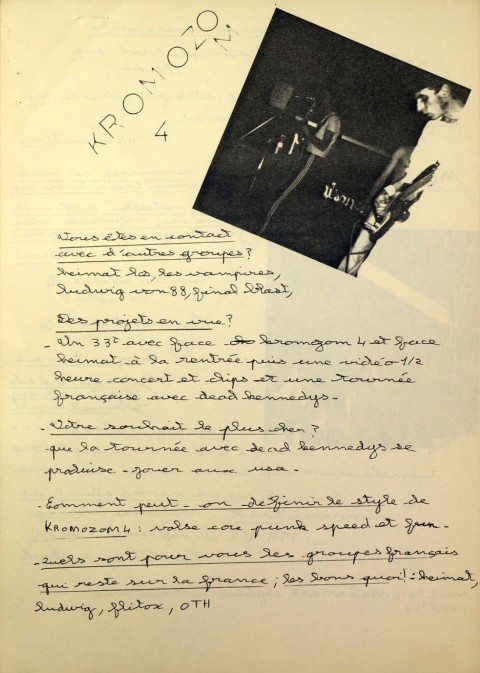 KROMOZOM
4
Vous êtes en contact
avec d'autres groupes?
heimat los, les vampires,
ludwig von 88, final blast,
Des projets en vue?
- Un 33t avec face kromozom 4 et face
heimat à la rentrée puis une vidéo 1/2
heure concert et clips et une tournée
française avec dead kennedys -
- Votre souhait le plus cher?
que la tournée avec dead kennedys se
produise - jouer aux usa -
- Comment peut-on definir le style de
KROMOZOM 4 : valse cou punk speed et fun -
- Quels sont pour vous les groupes français
qui reste sur la france; les bons quoi! : heimat,
ludwig, flitox, OTH